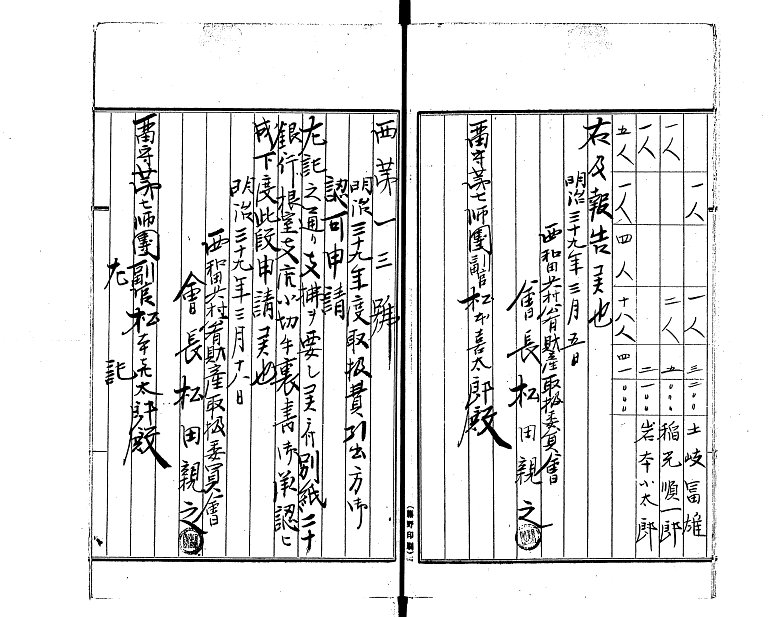 一人 一人 三三〇〇 土岐冨雄
一人 二人 五〇〇〇 稲兄順一郎
一人 二一〇〇 岩本小太郎
五人 一人 四人 十八人 四一〇〇〇
右及報告候也
明治三十九年三月五日
西和田兵村公有財産取扱委員會
會長 松田親之
留守第七師團副官 松本喜太郎殿
(藤野印刷)
西第一三號
明治三十九年度取扱費引出方御
認可申請
左記之通り支拂ヲ要シ候ニ付別紙二十
銀行根室支店小切手裏書御承認
成下度此段申請候也
明治三十九年三月十八日
西和田兵村公有財産取扱委員會
會長 松田親之
留守第七師團副官 松本喜太郎殿
左記